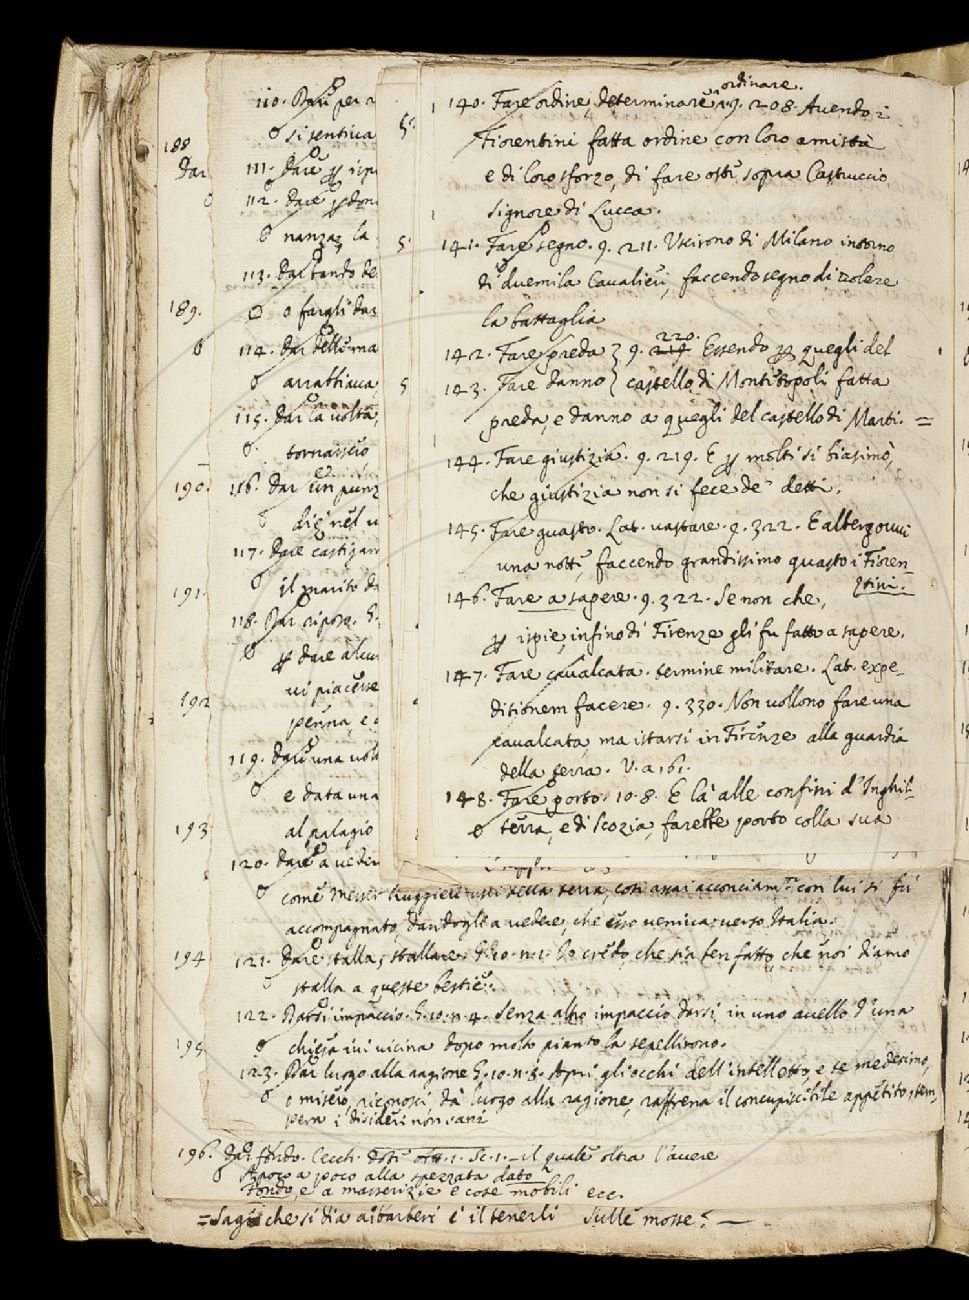 188
dar
189.
190.
191.
192
193
194
195
110. Dare per a
si sentiva
111. dare ꝑ risp
112. dare ꝑ don
nanza la
113. dar bando de
o fargli dar
114. dar dello ma
arrabbiava
115. dar la volta,
tornassero,
116. dar un punz
diè nel u
117. dare castigam
il marito da
118. Dar riposo. G.
ꝑ dare alcun
vi piacesse
penna, e
119. dare una volt
e data una
al palagio
120. dare a veder
come Messer Ruggieri della terra, così assai acconciam.te con lui si fu
accompagnato, dandogli a vedere, che esso veniva verso Italia.
121. Dare stalla, stallare. G. 10. n. 2. Io credo, che sia ben fatto, che noi diamo
stalla a queste bestie.
122. Darsi impaccio. G. 10. n. 4. Senza altro impaccio darsi, in uno avello d'una
chiesa ivi vicina dopo molto pianto la sepellirono.
123. Dar luogo alla ragione G. 10. n. 8. Apri gli occhi dell'intelletto, e te medesimo,
o misero, riconosci dà luogo alla ragione, raffrena il concupiscibile appetito, tem,
pera i disideri non sani
196. dar fondo. Cecch. Dote att. 1. Sc. 1. _ il quale oltra l'avere
A poco a poco alla spezzata dato
Fondo, e a masserizie e cose mobili ecc.
= Sago che si dia a i barberi è il tenerli sulle mosse? —
ordinare.
140. Fare ordine, determinare, 9. 208. Avendo i
Fiorentini fatta ordine con loro amistà
e di loro sforzo, di fare oste sopra Castruccio
signore di Lucca.
141. Fare segno. 9. 211. Uscirono di Milano intorno
di duemila Cavalieri, faccendo segno di volere
la battaglia
220.
142. Fare preda } 9. 219 Essendo ꝑ quegli del
143. Fare danno } castello di Montetopoli fatta
preda, e danno a quegli del castello di Marti. =
144. Fare giustizia. 9. 219. E ꝑ molti si biasimò,
che giustizia non si fece de' detti.
145. Fare guasto. Lat. vastare. 9. 322. E albergovvi
una notte, faccendo grandissimo guasto i Fioren-
tini.
146. Fare a sapere. 9. 322. Se non che,
ꝑ ispie, infino di Firenze gli fu fatto a sapere.
147. Fare cavalcata. termine militare. Lat. expe-
ditionem facere. 9. 330. Non vollono fare una
cavalcata, ma istarsi in Firenze alla guardia
della terra. V. a 161.
148. Fare porto. 10. 8. E là alle confini d'Inghil-
terra, e di Scozia, farebbe porto colla sua